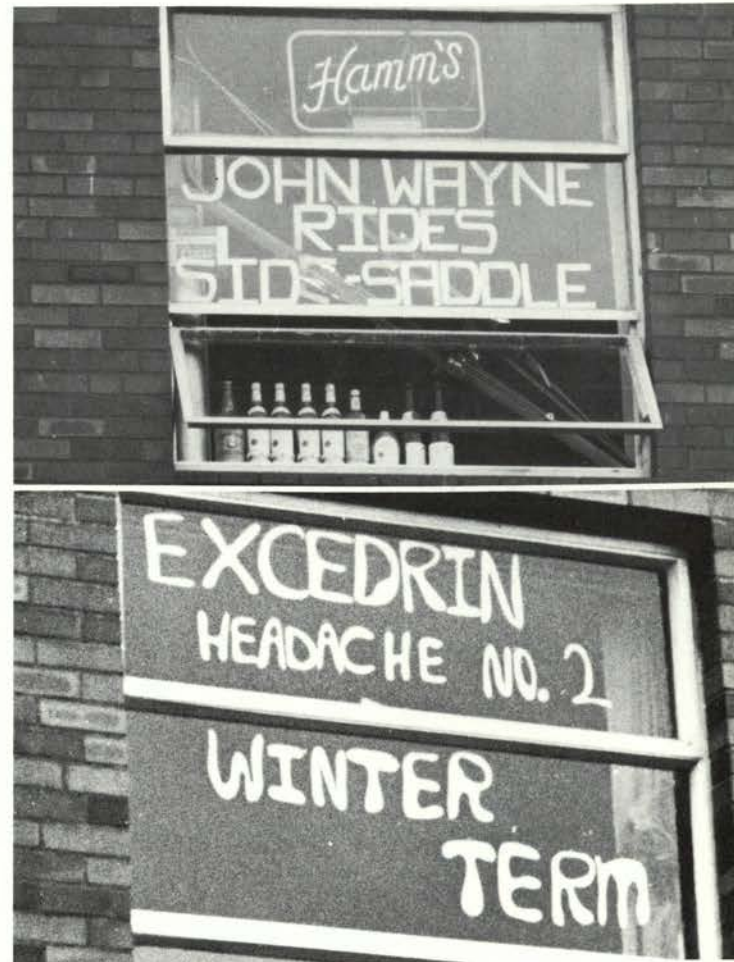 Hamm's
JOHN WAYNE
RIDES
SIDE-SADDLE
EXCEDRIN
HEADACHE NO. 2
WINTER
TERM